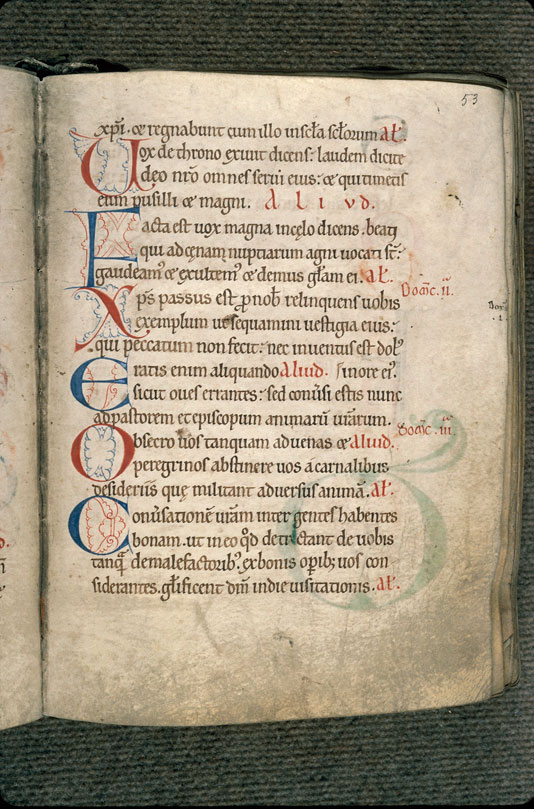 53
xp̄i. & regnabunt cum illo in sc̄la sc̄lorum. al̄.
Uox de throno exiuit dicens: laudem dicite
deo nr̄o omnes serui eius: & qui timetis
eum pusilli & magni. Aliud.
Facta est uox magna in cęlo dicens. beati
qui ad cęnam nuptiarum agni uocati st̄:
gaudeam᷒ & exultem᷒ & demus gl̄am ei. al̄.
Xp̄s passus est pro nob̄ relinquens uobis Dom̄c. ii.
exemplum ut sequamini uestigia eius:
qui peccatum non fecit: nec inuentus est dol᷒
Eratis enim aliquando Aliud. in ore ei᷒.
sicut oues errantes: sed conūsi estis nunc
ad pastorem et episcopum animarū ur̄arum.
Obsecro uos tanquam aduenas & aliud. Dom̄c. iii
peregrinos abstinere uos a carnalibus
desideriis quę militant aduersus animā. al̄.
Conūsationē ur̄am inter gentes habentes
bonam. ut in eo qd̄ detractant de uobis
tanq̄ de malefactorib᷒. ex bonis op̄ib; uos con
siderantes. gl̄ificent dm̄ in die uisitationis. al̄.